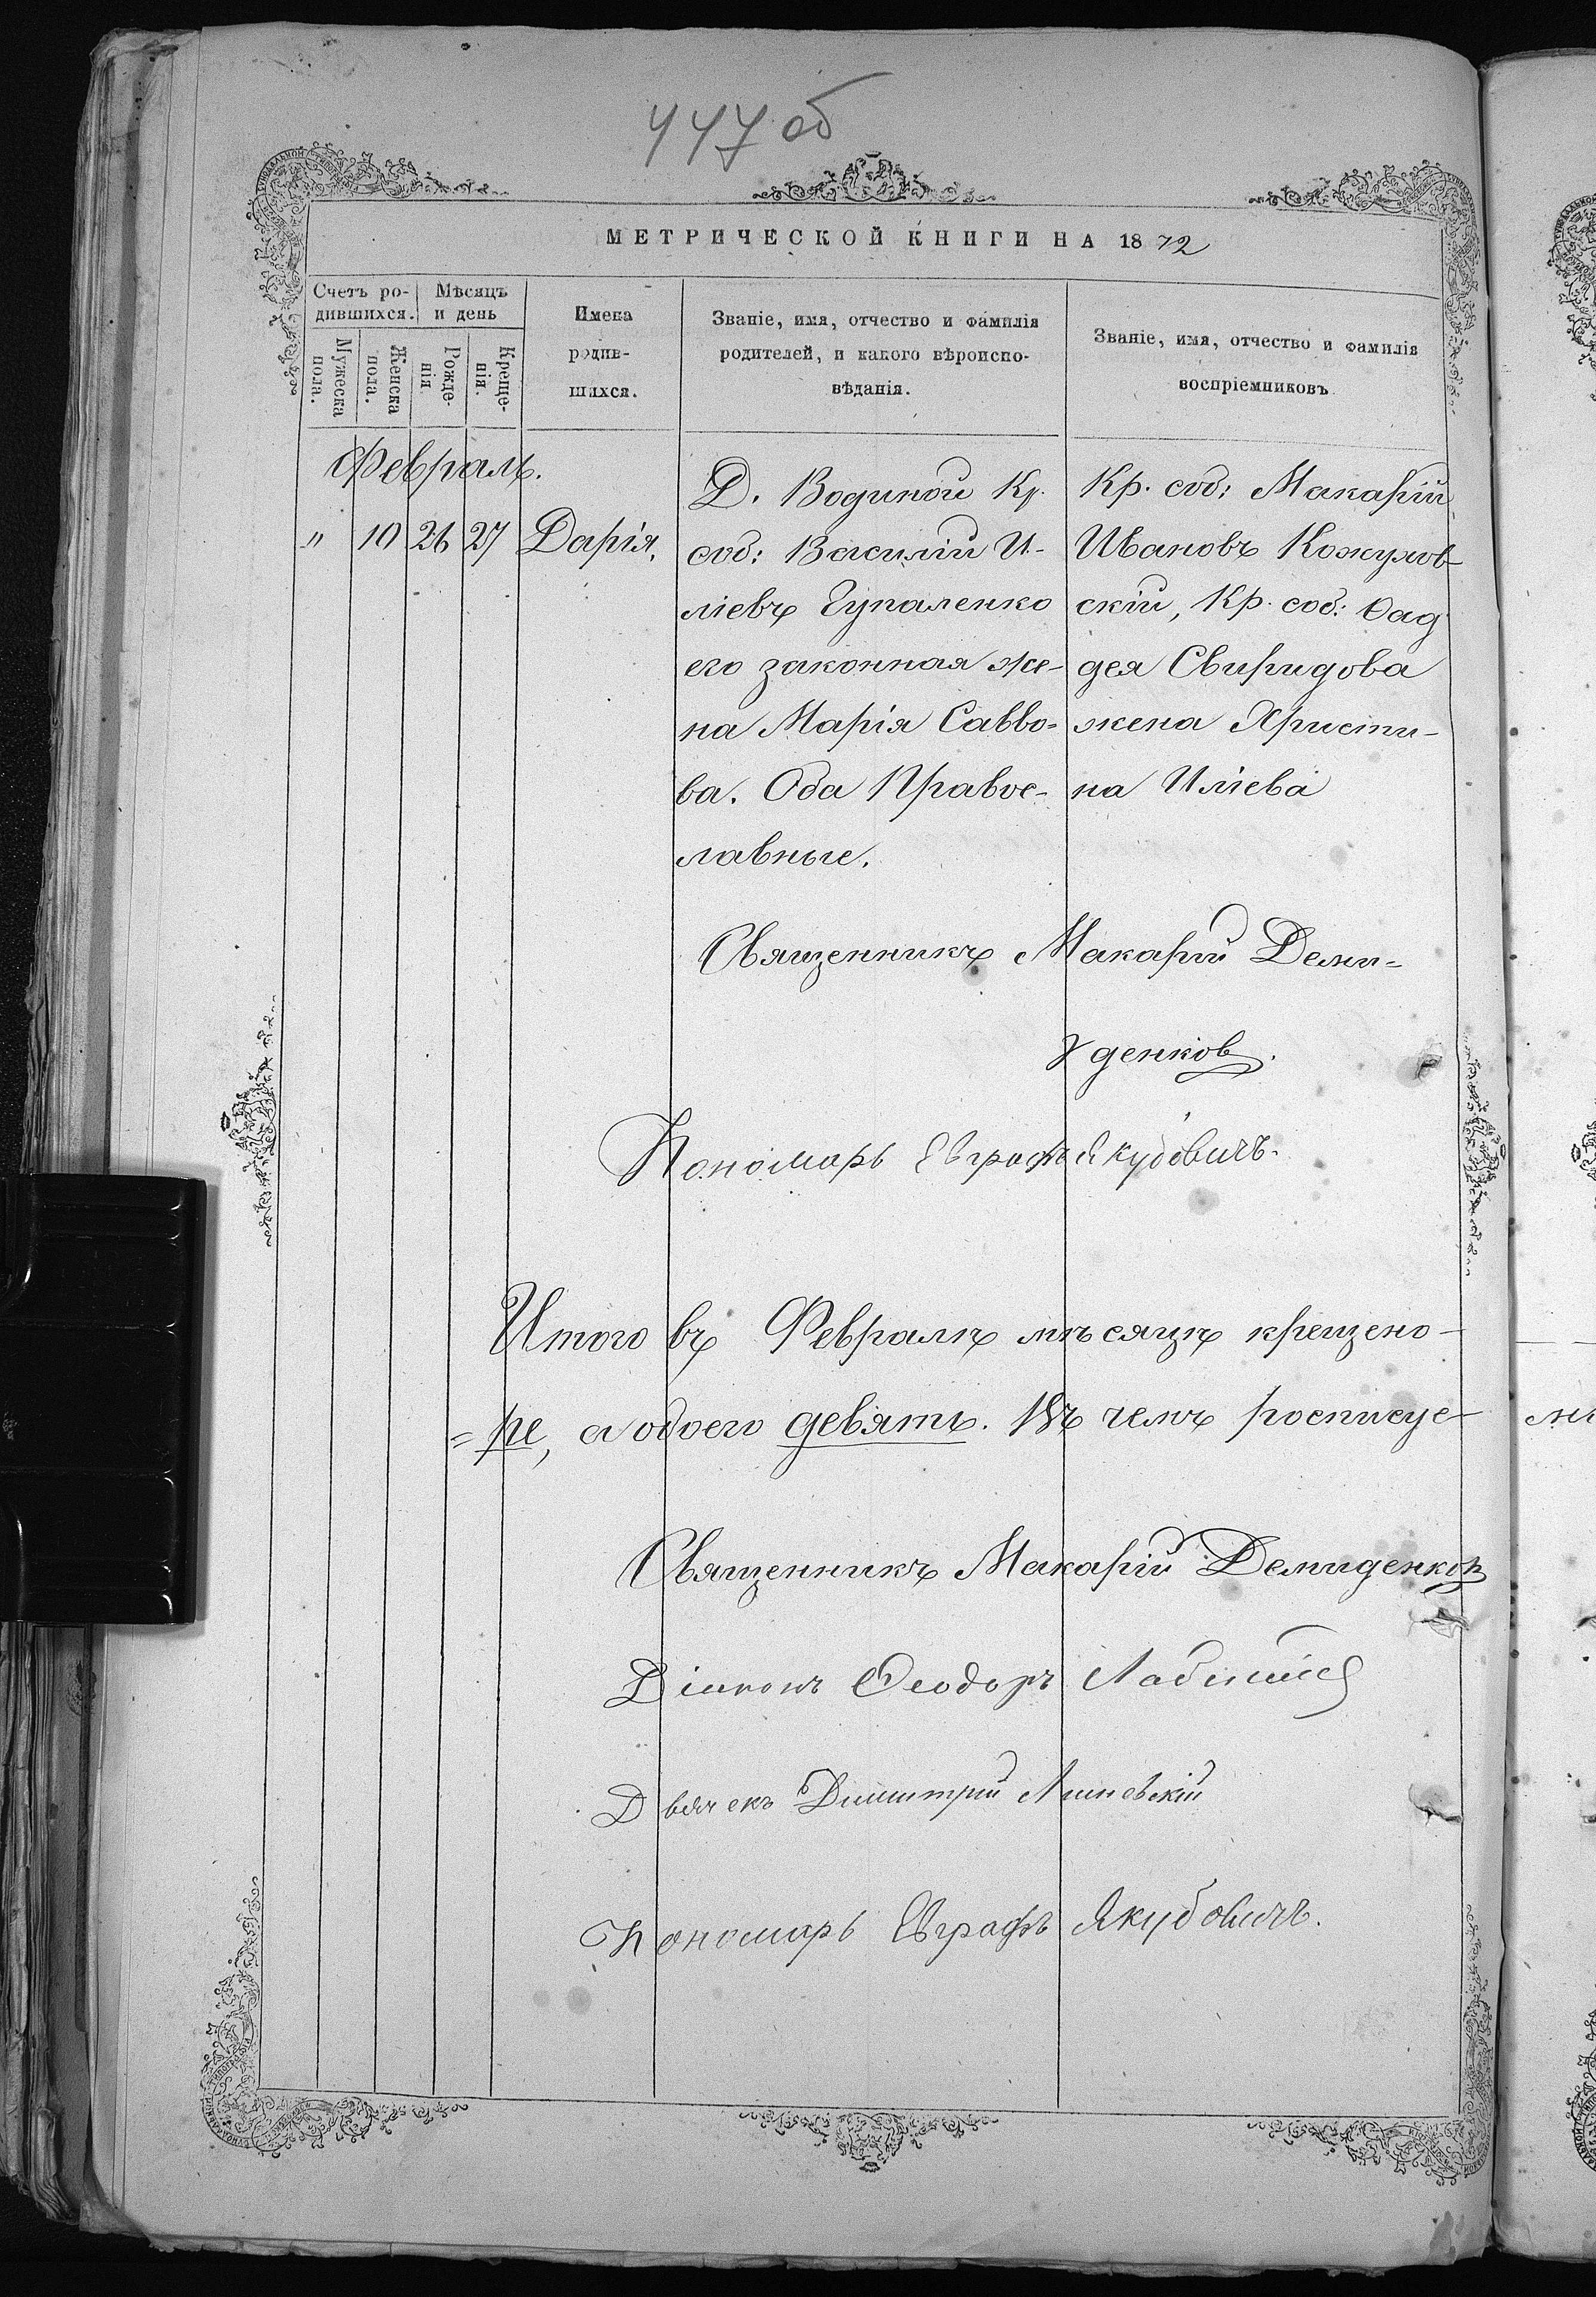 447 об
МЕТРИЧЕСКОЙ КНИГИ НА 1872
Счетъ ро-
дившихся.
Мѣсяцъ
и день
Мужеска
пола.
Женска
пола.
Рожде-
нія
Креще-
нія.
Имена
родив-
шихся.
Званіе, имя, отчество и фамилія
родителей, и какого вѣроиспо-
вѣданія.
Званіе, имя, отчество и фамилія
воспріемниковъ
Февраль.
" 10 26 27 Дарія,
Д. Водиной Кр.
соб: Василій И-
ліевъ Гупаленко
его законная же-
на Марія Савво-
ва. Оба Правос-
лавные.
Кр. соб: Макарій
Ивановъ Кожухов-
скій, Кр. соб: Ѳад
дея Свиридова
жена Христи-
на Иліева
Священникъ Макарій Деми-
денков.
Пономарь Евграфъ Якубовичъ.
Итого въ Февралѣ мѣсяцѣ крещено-
= ре, а обоего девять. Въ чемъ росписуе-
Священникъ Макарій Демиденков
Діаконъ Ѳеодоръ
Дьячекъ Димитрій Лисневскій
Пономарь Евграфъ Якубовичъ.